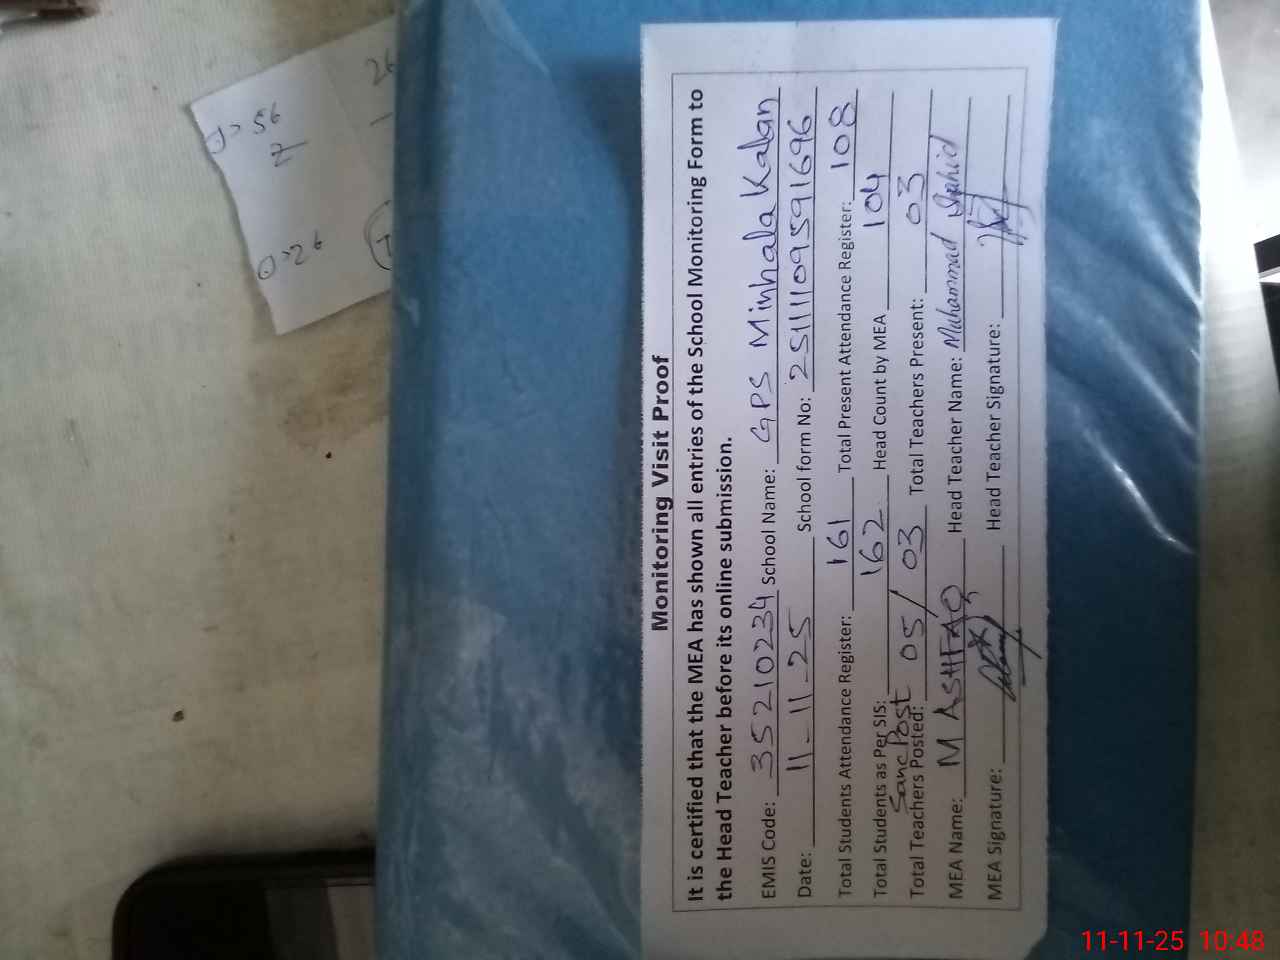 Monitoring Visit Proof
It is certified that the MEA has shown all entries of the School Monitoring Form to
the Head Teacher before its online submission.
EMIS Code: 35210234 School Name: GPS Minhala Kalan
Date: 11-11-25 School form No: 2511110959 1696
Total Students Attendance Register: 161 Total Present Attendance Register: 108
Total Students as Per SIS: 162 Head Count by MEA 104
Sanc Post
Total Teachers Posted: 05/03 Total Teachers Present: 03
MEA Name: M ASHFAQ Head Teacher Name: Muhammad Shahid
MEA Signature: Head Teacher Signature:
56
2
26
26
11-11-25 10:48